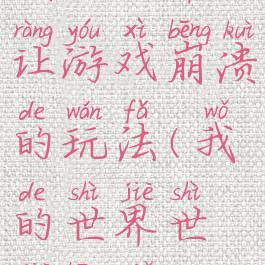 ràng yóu xì bēng kuì
让游戏崩溃
de wán fǎ wǒ
的玩法(我
de shì jiè shì
的世界世